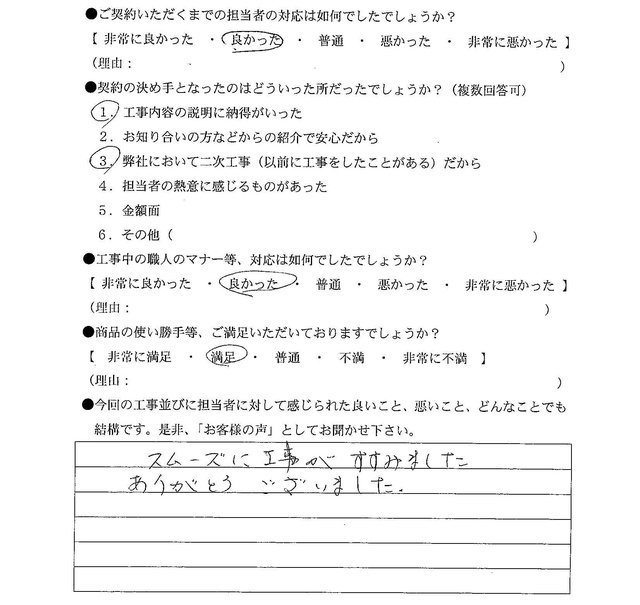 ●ご契約いただくまでの担当者の対応は如何でしたでしょうか？
【 非常に良かった ・ 良かった ・ 普通 ・ 悪かった ・ 非常に悪かった 】
（理由： ）
●契約の決め手となったのはどういった所だったでしょうか？（複数回答可）
１．工事内容の説明に納得がいった
２．お知り合いの方などからの紹介で安心だから
３．弊社において二次工事（以前に工事をしたことがある）だから
４．担当者の熱意に感じるものがあった
５．金額面
６．その他（ ）
●工事中の職人のマナー等、対応は如何でしたでしょうか？
【 非常に良かった ・ 良かった ・ 普通 ・ 悪かった ・ 非常に悪かった 】
（理由： ）
●商品の使い勝手等、ご満足いただいておりますでしょうか？
【 非常に満足 ・ 満足 ・ 普通 ・ 不満 ・ 非常に不満 】
（理由： ）
●今回の工事並びに担当者に対して感じられた良いこと、悪いこと、どんなことでも
結構です。是非、「お客様の声」としてお聞かせ下さい。
スムーズに工事がすすみました
ありがとうございました．